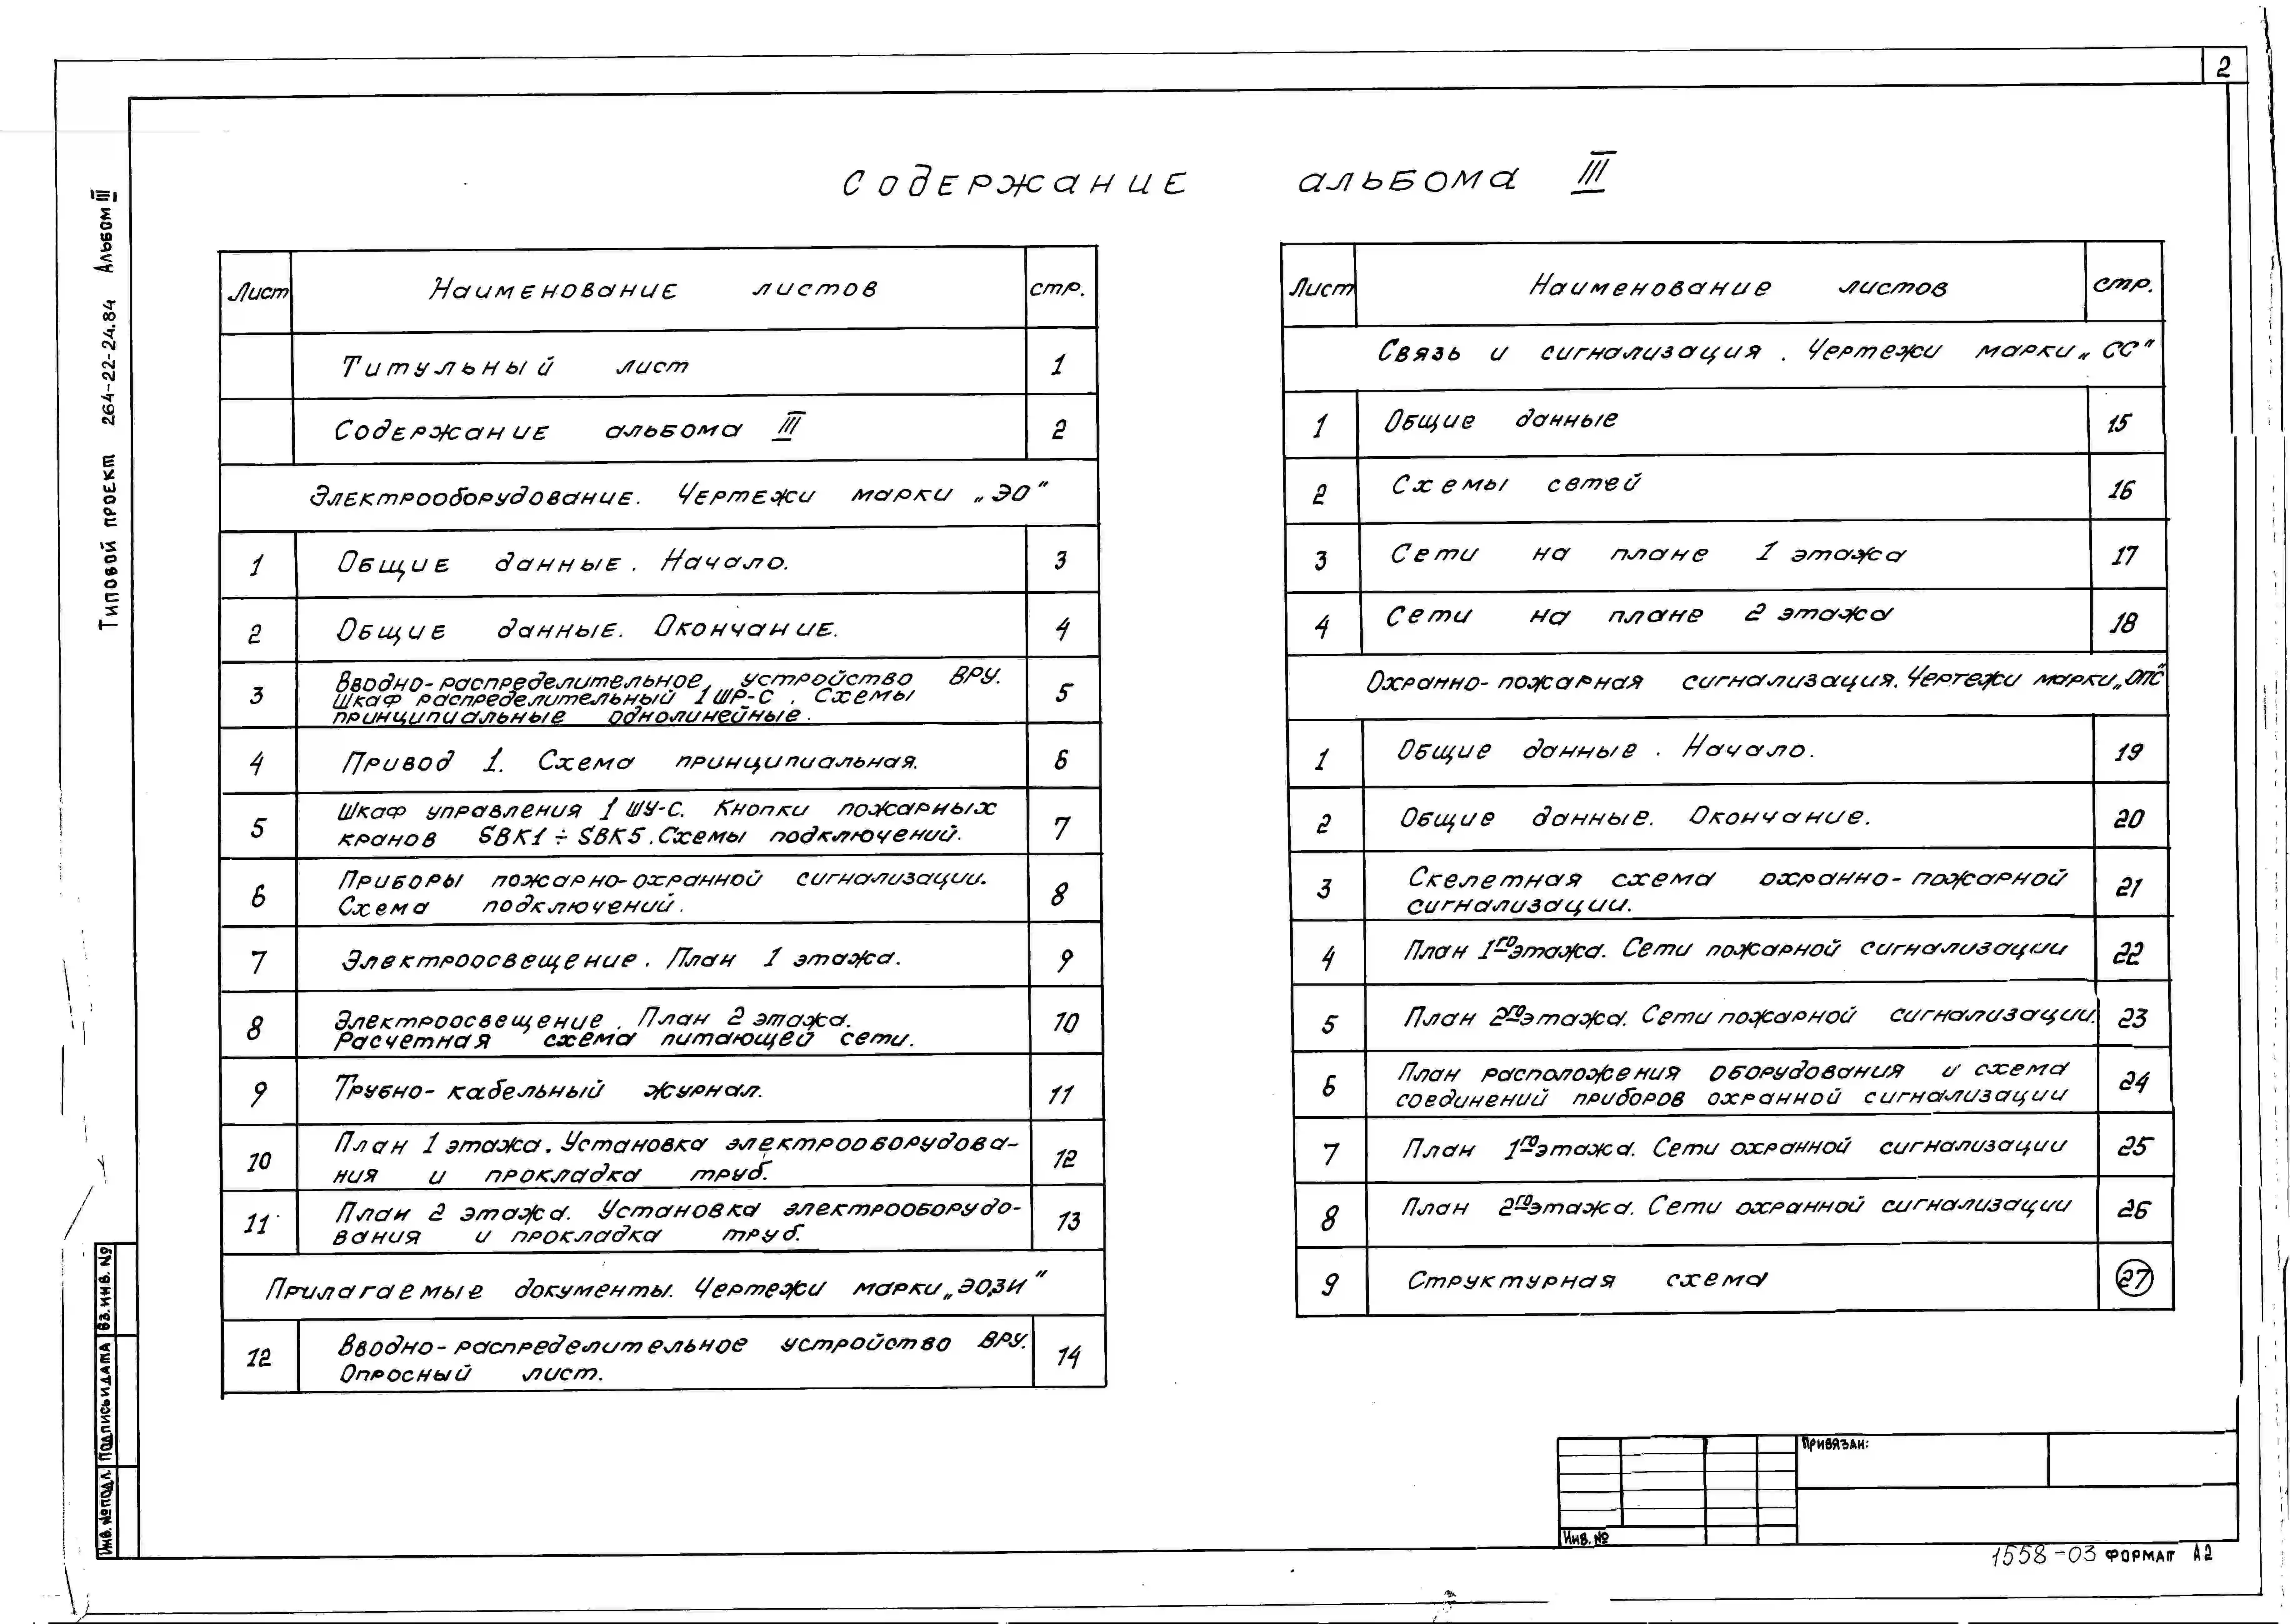 2
Типовой проект 264-22-24.84 Альбом III
Содержание альбома III
Лист Наименование листов стр.
Титульный лист 1
Содержание альбома III 2
Электрооборудование. Чертежи марки „ЭО"
1 Общие данные. Начало. 3
2 Общие данные. Окончание. 4
Вводно-распределительное устройство ВРУ.
3 Шкаф распределительный 1ШР-С. Схемы 5
принципиальные однолинейные.
4 Привод 1. Схема принципиальная. 6
5 Шкаф управления 1ШУ-С. Кнопки пожарных 7
кранов SBK1 ÷ SBK5. Схемы подключений.
6 Приборы пожарно-охранной сигнализации. 8
Схема подключений.
7 Электроосвещение. План 1 этажа. 9
8 Электроосвещение. План 2 этажа. 10
Расчетная схема питающей сети.
9 Трубно-кабельный журнал. 11
10 План 1 этажа. Установка электрооборудова- 12
ния и прокладка труб.
11 План 2 этажа. Установка электрооборудо- 13
вания и прокладка труб.
Прилагаемые документы. Чертежи марки „ЭО.ЗИ"
12 Вводно-распределительное устройство ВРУ. 14
Опросный лист.
Лист Наименование листов стр.
Связь и сигнализация. Чертежи марки „СС"
1 Общие данные 15
2 Схемы сетей 16
3 Сети на плане 1 этажа 17
4 Сети на плане 2 этажа 18
Охранно-пожарная сигнализация. Чертежи марки „ОПС"
1 Общие данные. Начало. 19
2 Общие данные. Окончание. 20
3 Скелетная схема охранно-пожарной 21
сигнализации.
4 План 1го этажа. Сети пожарной сигнализации 22
5 План 2го этажа. Сети пожарной сигнализации. 23
6 План расположения оборудования и схема 24
соединений приборов охранной сигнализации
7 План 1го этажа. Сети охранной сигнализации 25
8 План 2го этажа. Сети охранной сигнализации 26
9 Структурная схема 27
Инв. № подл. Подпись и дата Вз. инв. №
Привязан:
Инв. №
1558-03 формат А2